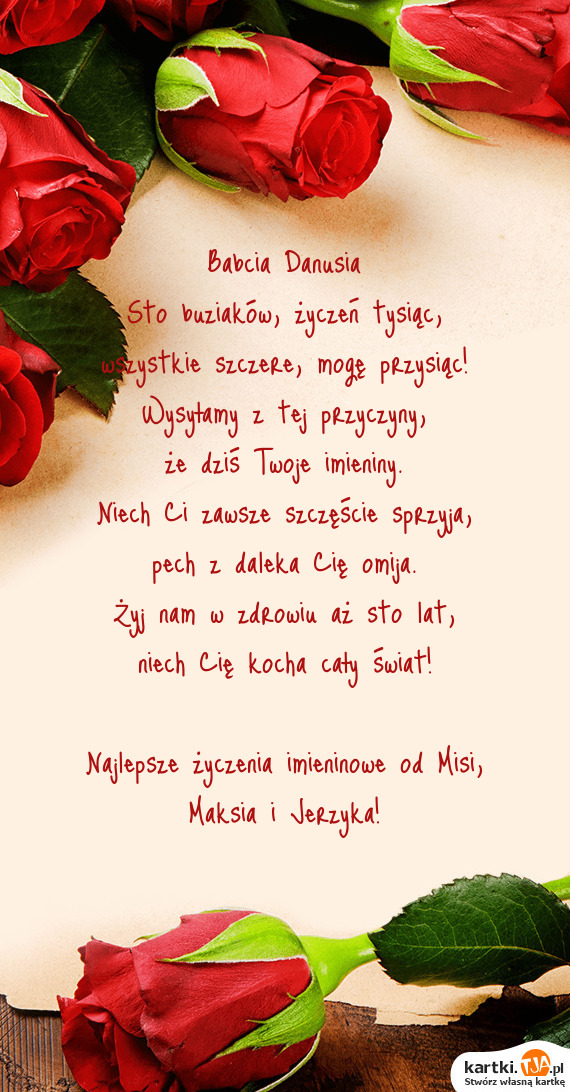 Babcia Danusia
Sto buziaków, życzeń tysiąc,
wszystkie szczere, mogę przysiąc!
Wysyłamy z tej przyczyny,
że dziś Twoje imieniny.
Niech Ci zawsze szczęście sprzyja,
pech z daleka Cię omija.
Żyj nam w zdrowiu aż sto lat,
niech Cię kocha cały świat!
Najlepsze życzenia imieninowe od Misi,
Maksia i Jerzyka!
kartki.TJA.pl
Stwórz własną kartkę